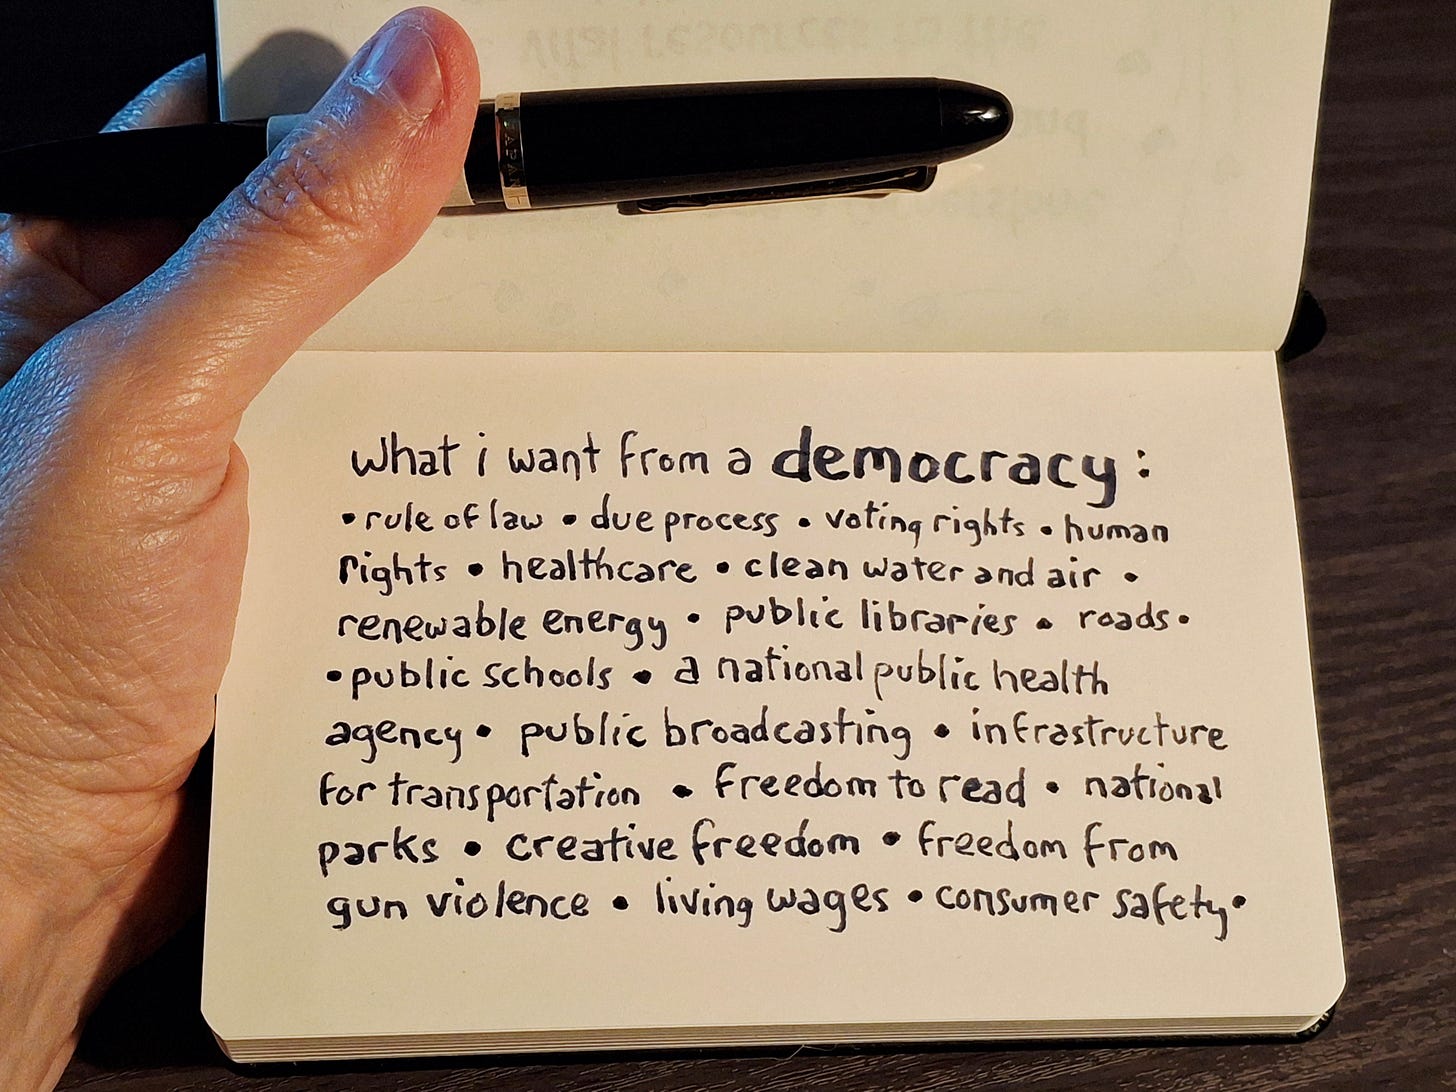 vital resources to the
and
JAPAN
what i want from a democracy:
• rule of law • due process • voting rights • human
rights • healthcare • clean water and air •
renewable energy • public libraries • roads •
• public schools • a national public health
agency • public broadcasting • infrastructure
for transportation • freedom to read • national
parks • creative freedom • freedom from
gun violence • living wages • consumer safety •